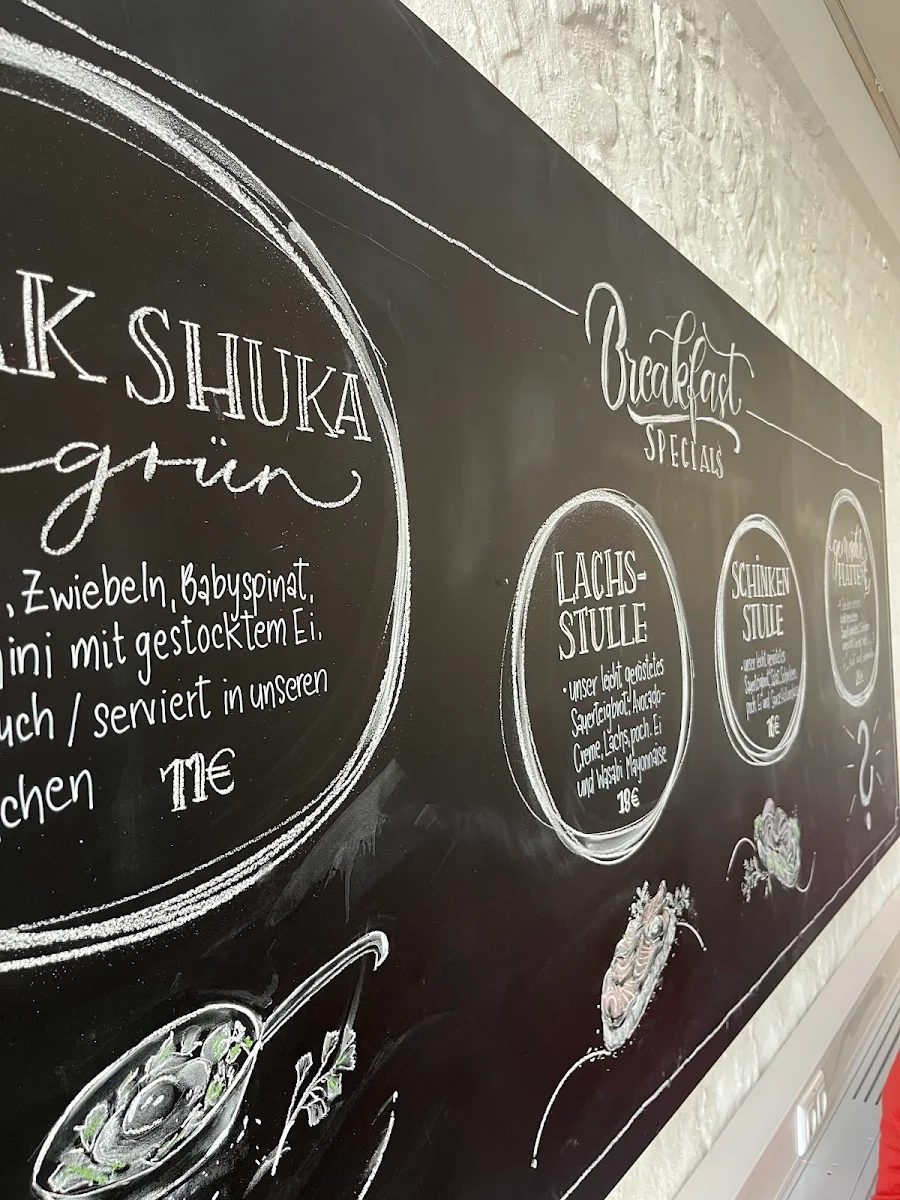 AK SHUKA
grün
, Zwiebeln, Babyspinat,
ini mit gestocktem Ei.
uch / serviert in unseren
chen 11€
Breakfast
SPECIALS
LACHS-
STULLE
• unser leicht geröstetes
Sauerteigbrot, Avocado-
Creme, Lachs, poch. Ei
und Wasabi Mayonnaise
18€
SCHINKEN
STULLE
• unser leicht geröstetes
Sauerteigbrot, Salat, Schinken,
poch. Ei und
16€
PLATTE
?